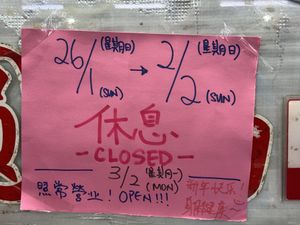 26/1 (星期日) (SUN) → 2/2 (星期日) (SUN)
休息
-CLOSED-
3/2 (星期一) (MON)
照常營业! OPEN!!!
新年快乐!
身体健康~